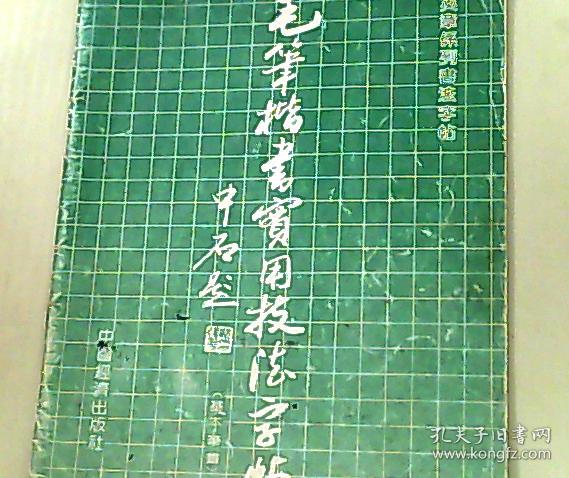 章係列書法字帖
毛筆楷書實用技法字帖
中石题
(基本筆畫)
中國經濟出版社
孔夫子旧书网